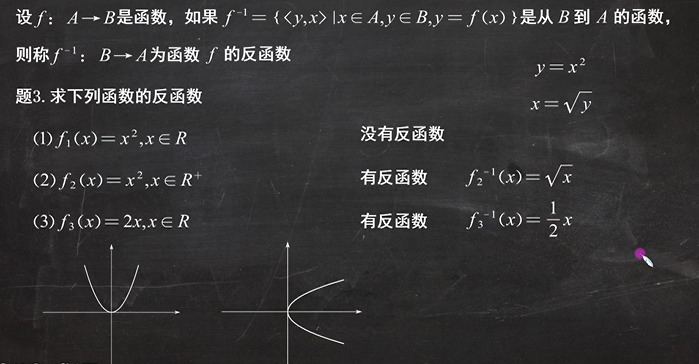 设 f：A→B是函数，如果 f⁻¹＝{<y,x>|x∈A,y∈B,y＝f(x)}是从 B 到 A 的函数，
则称f⁻¹：B→A为函数 f 的反函数
y＝x²
x＝√y
题3.求下列函数的反函数
(1)f₁(x)＝x²,x∈R 没有反函数
(2)f₂(x)＝x²,x∈R⁺ 有反函数 f₂⁻¹(x)＝√x
(3)f₃(x)＝2x,x∈R 有反函数 f₃⁻¹(x)＝1/2 x